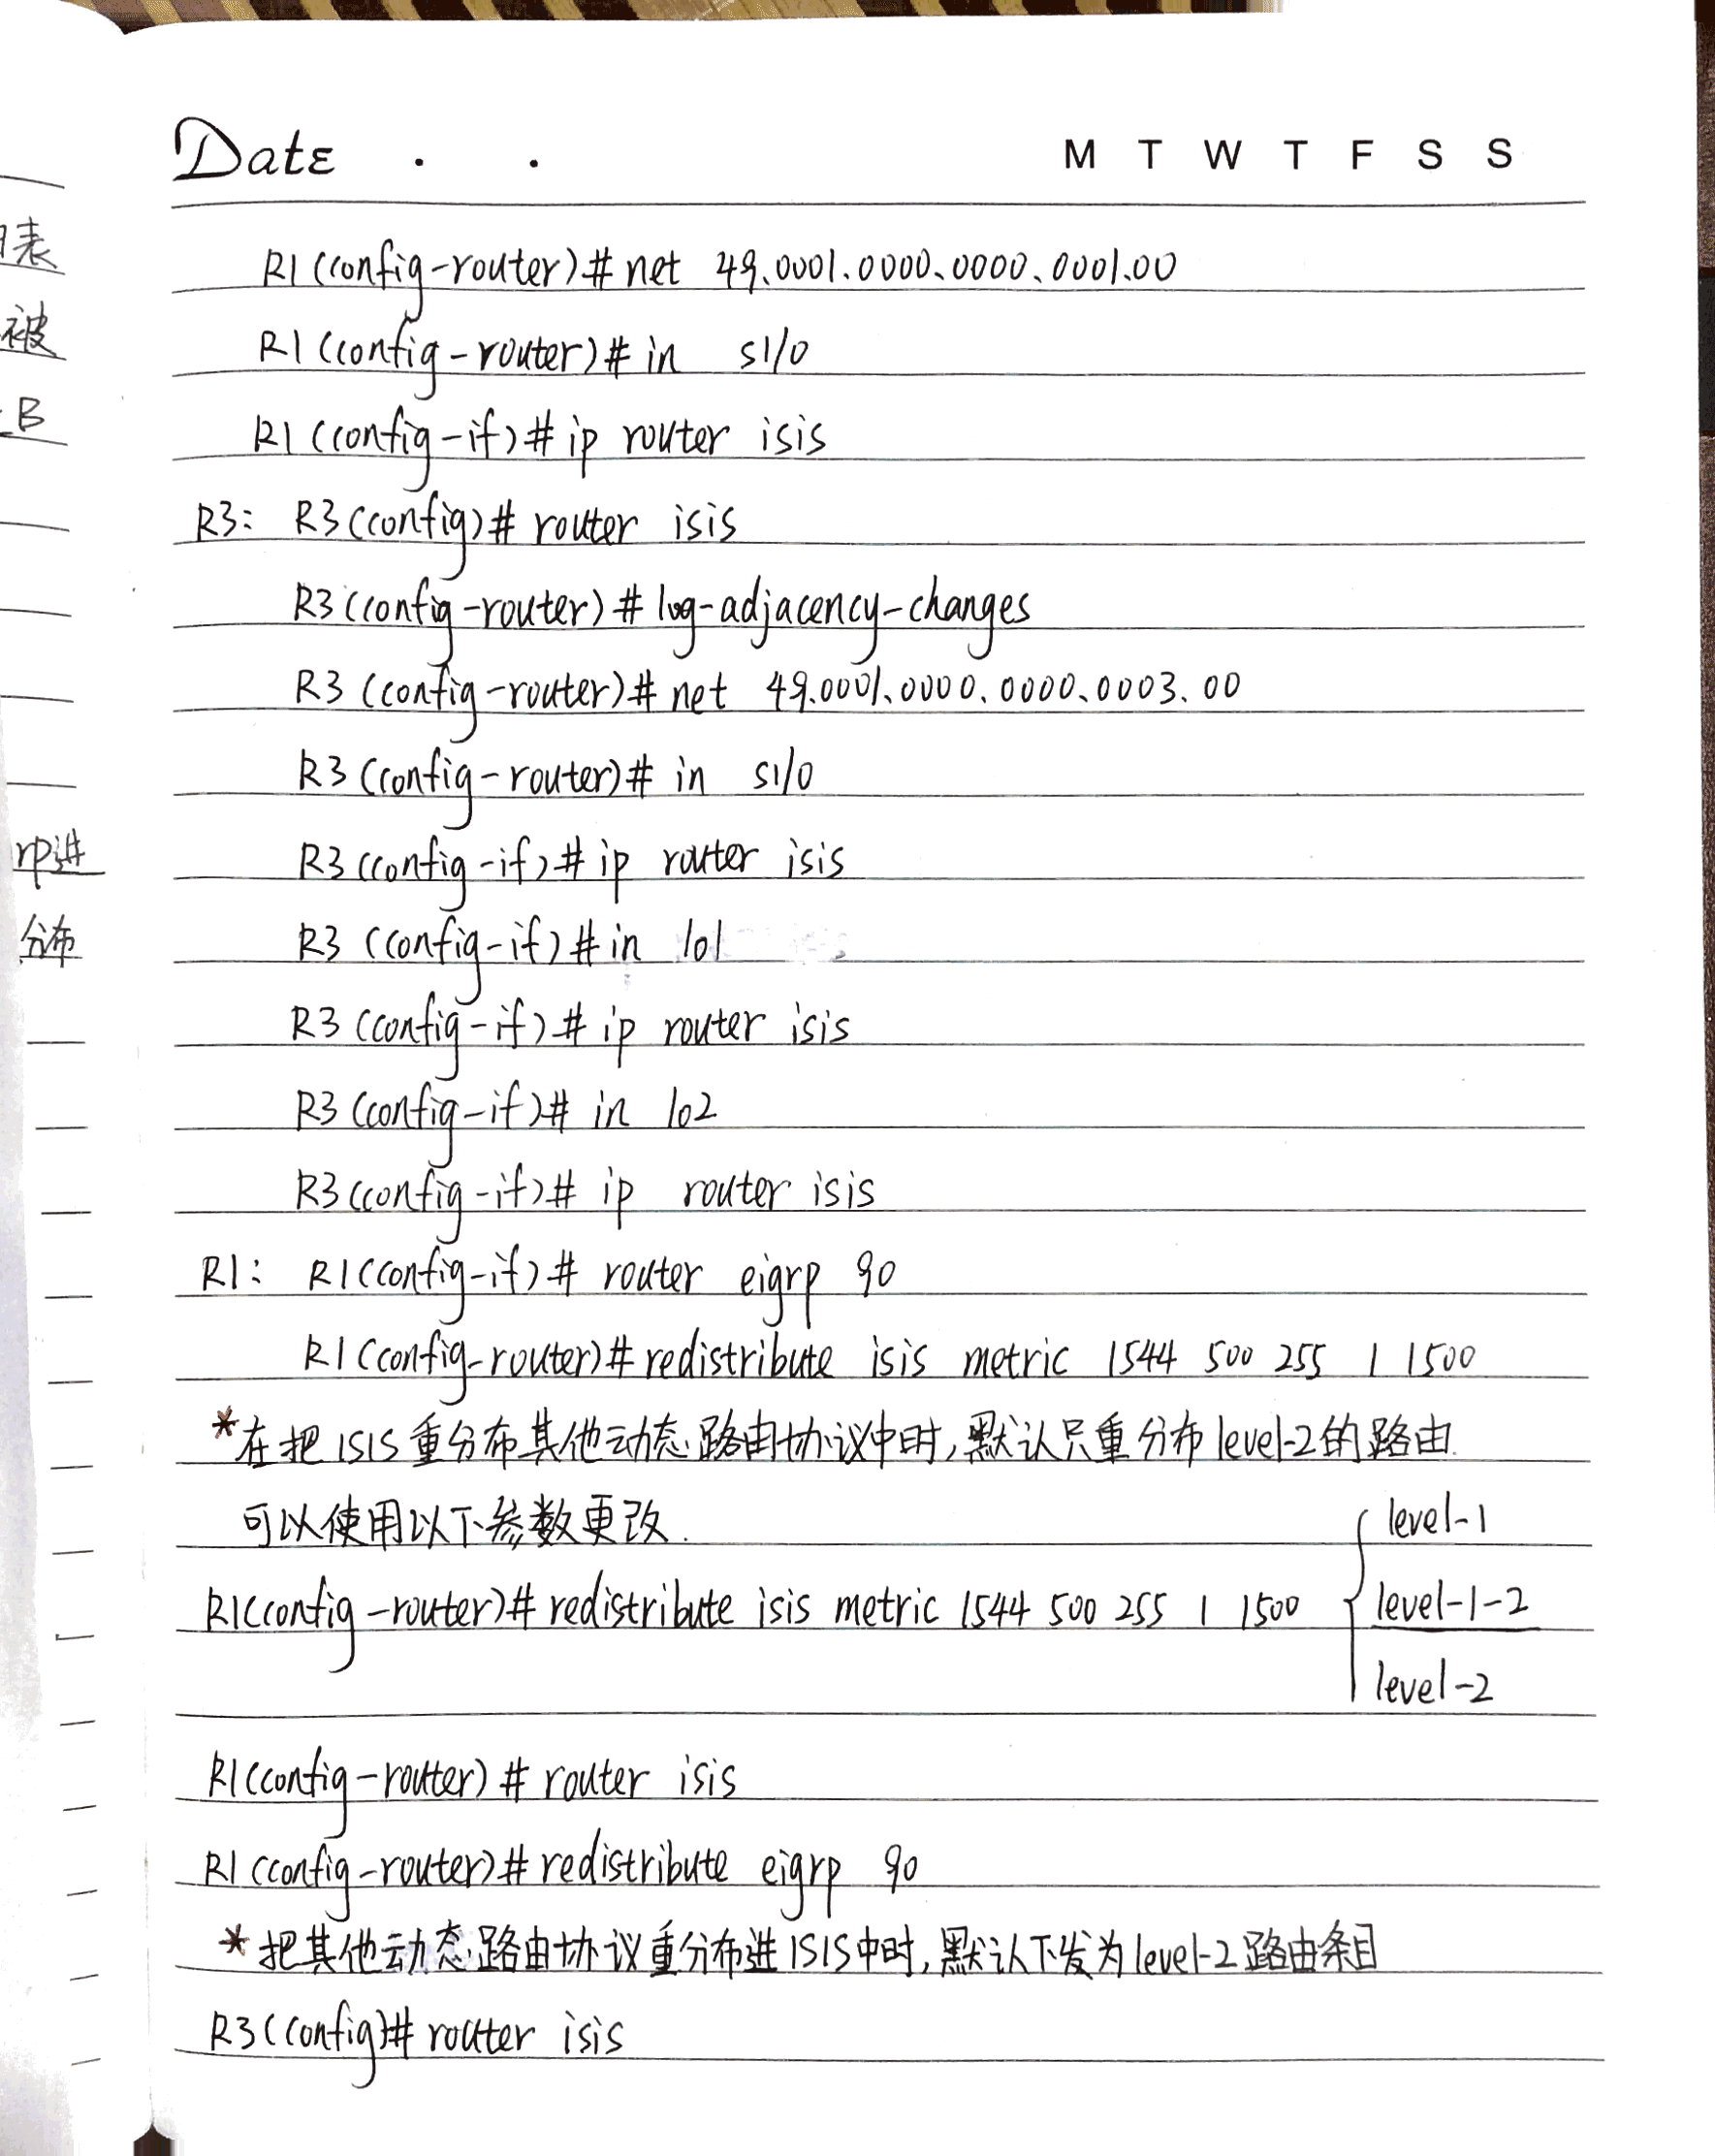 Date . .
M T W T F S S
R1(config-router)# net 49.0001.0000.0000.0001.00
R1(config-router)# in s1/0
R1(config-if)# ip router isis
R3: R3(config)# router isis
R3(config-router)# log-adjacency-changes
R3(config-router)# net 49.0001.0000.0000.0003.00
R3(config-router)# in s1/0
R3(config-if)# ip router isis
R3(config-if)# in lo1
R3(config-if)# ip router isis
R3(config-if)# in lo2
R3(config-if)# ip router isis
R1: R1(config-if)# router eigrp 90
R1(config-router)# redistribute isis metric 1544 500 255 1 1500
*在把ISIS重分布其他动态路由协议中时,默认只重分布level-2的路由.
可以使用以下参数更改.
R1(config-router)# redistribute isis metric 1544 500 255 1 1500
level-1
level-1-2
level-2
R1(config-router)# router isis
R1(config-router)# redistribute eigrp 90
*把其他动态路由协议重分布进ISIS中时,默认下发为level-2路由条目
R3(config)# router isis
表
被
B
rp进
分布